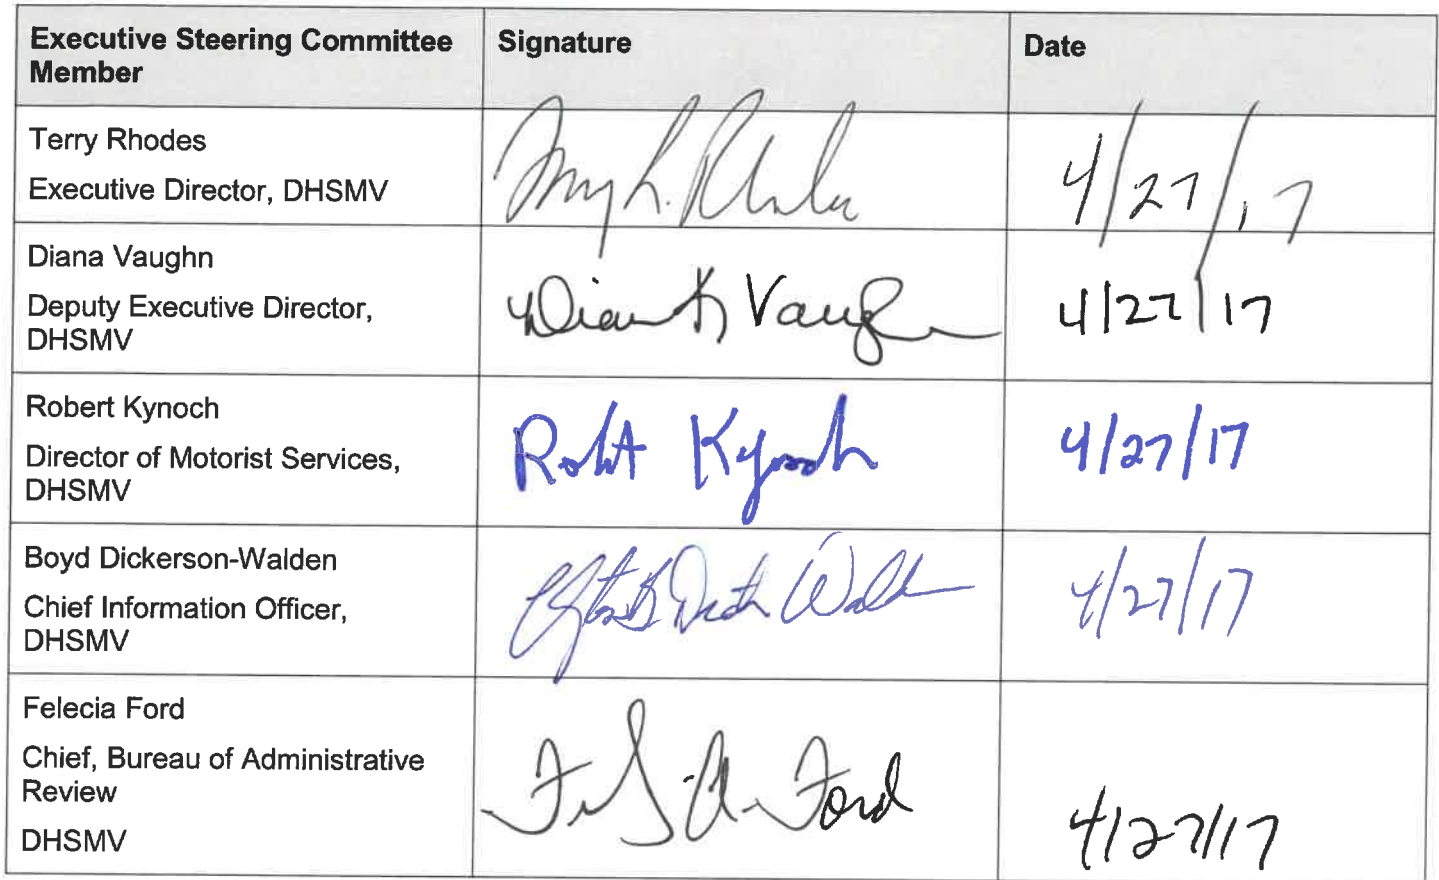 Executive Steering Committee
Member
Signature
Date
Terry Rhodes
Executive Director, DHSMV
Terry L. Rhodes
4/27/17
Diana Vaughn
Deputy Executive Director,
DHSMV
Diana Vaughn
4/27/17
Robert Kynoch
Director of Motorist Services,
DHSMV
Robt Kynoch
4/27/17
Boyd Dickerson-Walden
Chief Information Officer,
DHSMV
Walden
4/27/17
Felecia Ford
Chief, Bureau of Administrative
Review
DHSMV
Ford
4/27/17